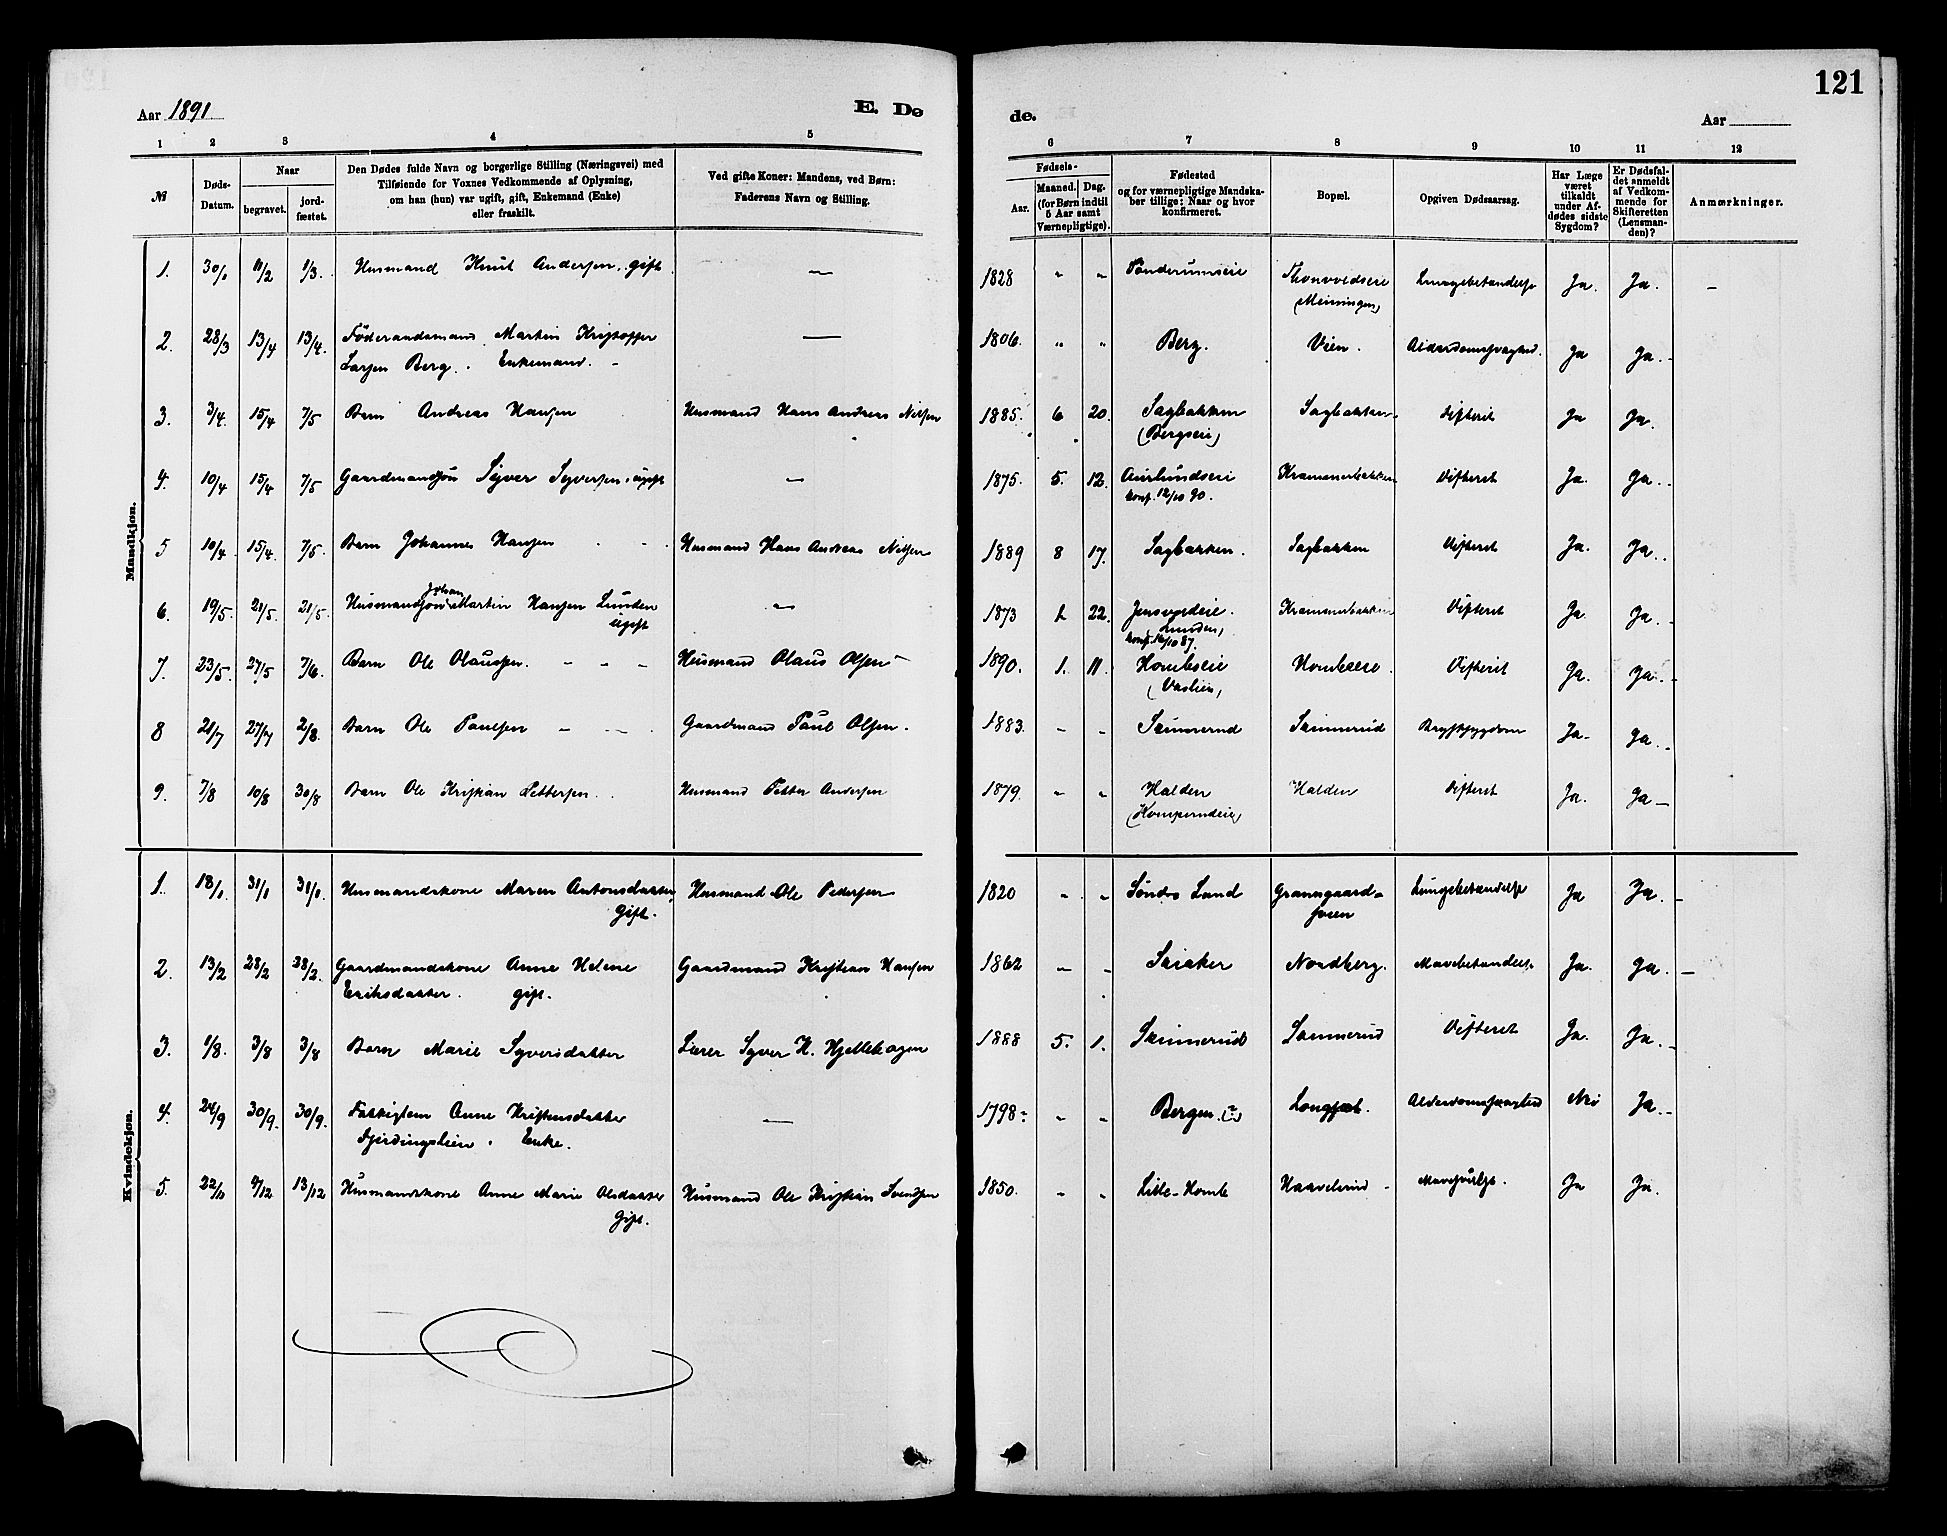 121
Aar 1891 E. Dø
de. Aar
1 2 3 4 5
6 7 8 9 10 11 12
№
Døds-Datum.
Naar
begravet. jord-fæstet.
Den Dødes fulde Navn og borgerlige Stilling (Næringsvei) med
Tilføiende for Voxnes Vedkommende af Oplysning,
om han (hun) var ugift, gift, Enkemand (Enke)
eller fraskilt.
Ved gifte Koner: Mandens, ved Børn:
Faderens Navn og Stilling.
Fødsels-
Aar. Maaned. Dag.
(for Børn indtil
5 Aar samt
Værnepligtige).
Fødested
og for værnepligtige Mandska-
ber tillige: Naar og hvor
konfirmeret.
Bopæl.
Opgiven Dødsaarsag.
Har Læge
været
tilkaldt
under Af-
dødes sidste
Sygdom?
Er Dødsfal-
det anmeldt
af Vedkom-
mende for
Skifteretten
(Lensman-
den)?
Anmærkninger.
Mandkjøn.
1. 30/1 11/2 1/3. Husmand Knut Andersen, gift. — 1828 " " Tønderumseie Ja. Ja. –
(Meiningen)
2. 28/3 13/4 13/4. Føderaadsmand Martin Kristoffer — 1806. " " Berg. Vien. Alderdomssvaghed. Ja Ja.
Larsen Berg. Enkemand.
3. 3/4. 15/4 7/5 Barn Andreas Hansen Husmand Hans Andreas Nilsen 1885. 6 20. Sagbakken Sagbakken. Difterit Ja Ja.
(Bergseie)
4. 10/4 15/4 7/5 Gaardmandssøn Syver Syversen, ugift — 1875. 5. 12. Aurlundseie Krammerbakken Difterit Ja. Ja.
konf. 12/10 90.
5 10/4 15/4. 7/5. Barn Johannes Hansen Husmand Hans Andreas Nilsen 1889 8 17. Sagbakken. Sagbakken Difterit Ja. Ja.
6. 19/5. 21/5. 21/5. Husmandssøn Johan Martin Hansen Lunden — 1873 22. Krammerbakken Difterit Ja. Ja.
ugift (Lunden)
7. 23/5. 27/5 7/6. Barn Ole Olaussen. Husmand Olaus Olsen 1890. 1. 11. Hombseie Hombseie. Difterit Ja. Ja.
8 21/7 27/7 2/8. Barn Ole Paulsen Gaardmand Paul Olsen. 1883. - - Skinnerud Skinnerud Brystsygdom Ja. Ja.
9. 7/8 10/8 30/8 Barn Ole Kristian Pettersen Husmand Petter Andersen 1879. - " Halden Halden Difterit Ja. Ja
Kvindekjøn.
1. 18/1. 31/1 31/1. Husmandskone Maren Antonsdatter, Husmand Ole Pedersen 1820 - - Søndre Land Granngaard- Lungebetændelse Ja Ja.
Gift.
2. 13/2 28/2 28/2. Gaardmandskone Anne Helene Gaardmand Kristian Hansen 1862 - - Skiaker Nordberg. Mavebetændelse Ja. Ja.
Eriksdatter. gift.
3. 1/8. 3/8 3/8 Barn Marie Syversdatter Lærer Syver H. Hjellehagen 1888 5. 1. Skinnerud Skinnerud Difterit Ja. Ja.
4. 24/9 30/9. 30/9. Fattiglem Anne Kristensdatter — 1798 - - Bergen (?) Alderdomssvaghed Nei Ja.
Fjerdingslien. Enke.
5. 22/11 4/12 13/12 Husmandskone Anne Marie Olsdatter Husmand Ole Kristian Svendsen 1850. - - Lille-Homb Haavelsrud Ja Ja.
Gift.